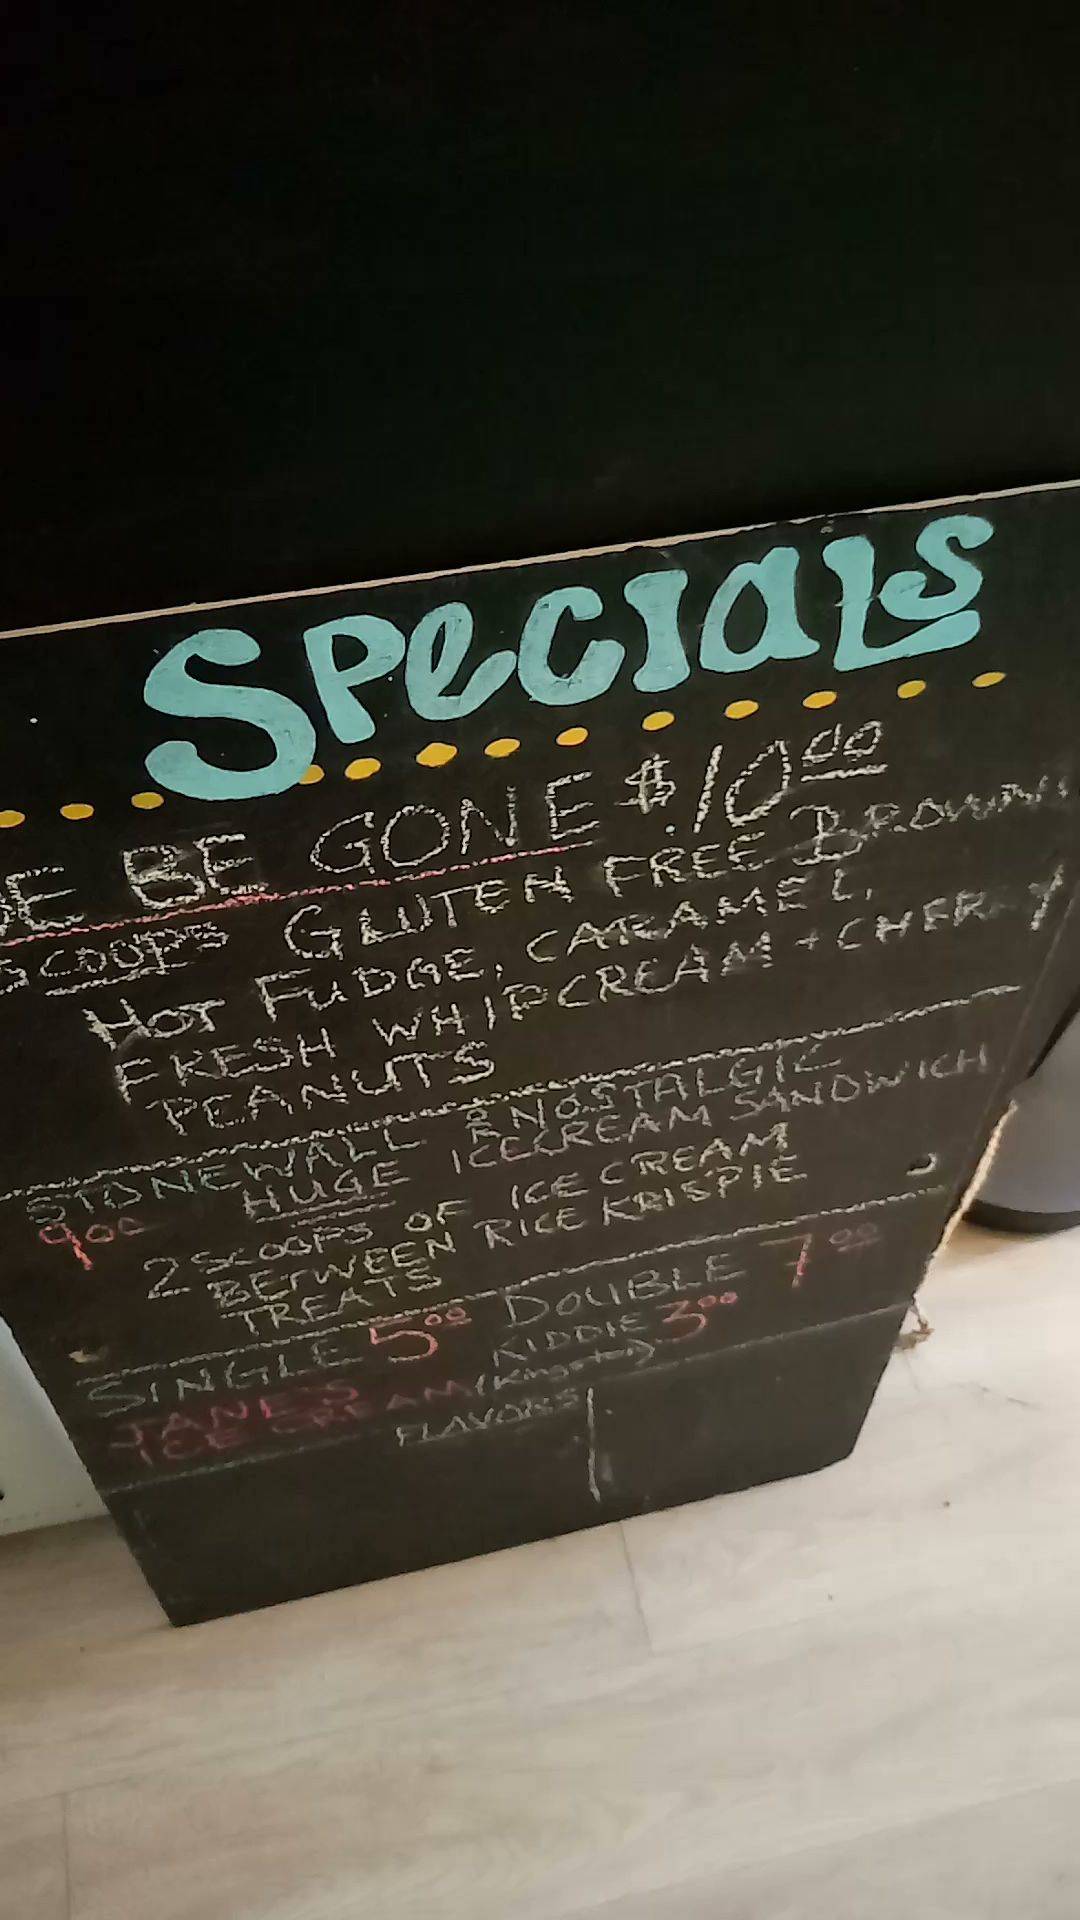 SPECIALS
BE GONE $10.00
SCOOPS GLUTEN FREE
HOT FUDGE, CARAMEL,
FRESH WHIPCREAM + CHERRY
PEANUTS
STONEWALL NOSTALGIC
9.00 HUGE ICECREAM SANDWICH
2 SCOOPS OF ICE CREAM
BETWEEN RICE KRISPIE
TREATS
SINGLE 5.00 DOUBLE 7.00
KIDDIE 3.00
JANE'S
ICE CREAM (Kingston)
FLAVORS